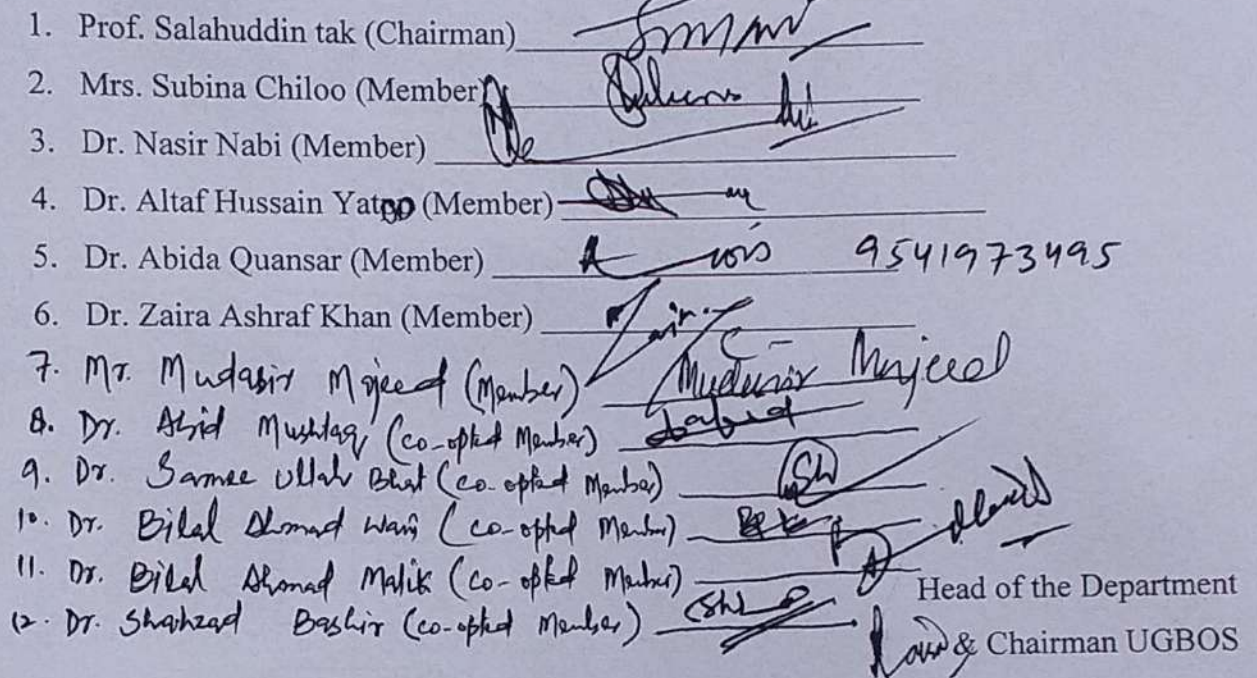 1. Prof. Salahuddin tak (Chairman)
2. Mrs. Subina Chiloo (Member)
3. Dr. Nasir Nabi (Member)
4. Dr. Altaf Hussain Yatoo (Member)
5. Dr. Abida Quansar (Member) 9541973495
6. Dr. Zaira Ashraf Khan (Member)
7. Mr. Mudasir Majeed (Member) Mudasir Majeed
8. Dr. Abid Mushtaq (co-opted Member)
9. Dr. Samee Ullah Bhat (co-opted Member)
10. Dr. Bilal Ahmad Wani (co-opted Member)
11. Dr. Bilal Ahmad Malik (co-opted Member)
12. Dr. Shahzad Bashir (co-opted Member)
Head of the Department
& Chairman UGBOS